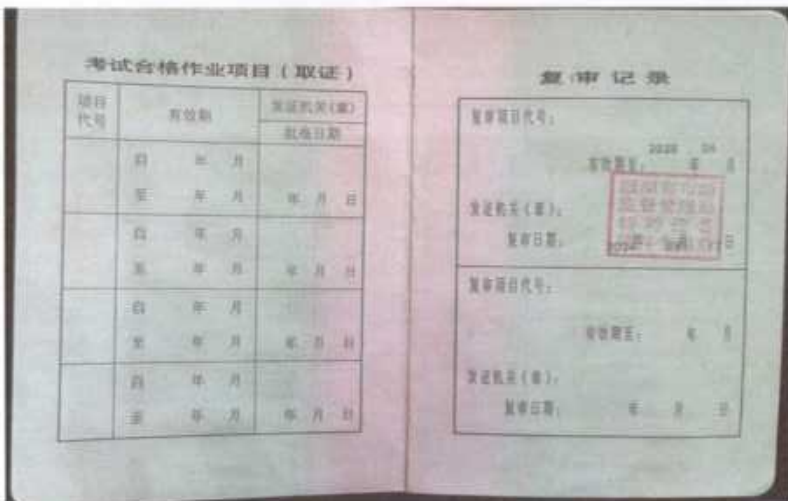 考试合格作业项目（取证）
项目代号 有效期 发证机关(章)
批准日期
自 年 月
至 年 月 年 月 日
自 年 月
至 年 月 年 月 日
自 年 月
至 年 月 年 月 日
自 年 月
至 年 月 年 月 日
复审记录
复审项目代号：
有效期至： 年 月
发证机关(章)：
复审日期： 年 月 日
复审项目代号：
有效期至： 年 月
发证机关(章)：
复审日期： 年 月 日